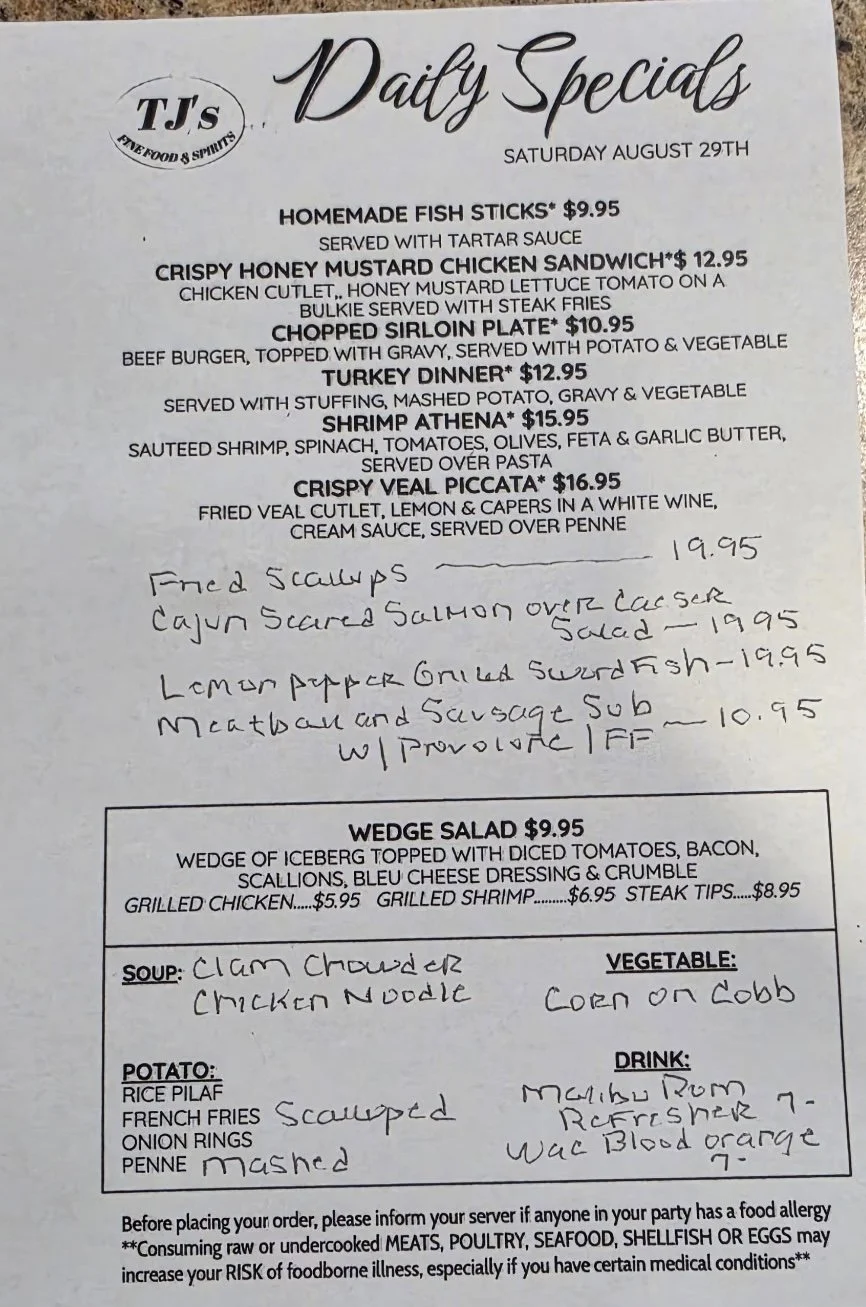 TJ's
FINE FOOD & SPIRITS
Daily Specials
SATURDAY AUGUST 29TH
HOMEMADE FISH STICKS* $9.95
SERVED WITH TARTAR SAUCE
CRISPY HONEY MUSTARD CHICKEN SANDWICH*$ 12.95
CHICKEN CUTLET,, HONEY MUSTARD LETTUCE TOMATO ON A
BULKIE SERVED WITH STEAK FRIES
CHOPPED SIRLOIN PLATE* $10.95
BEEF BURGER, TOPPED WITH GRAVY, SERVED WITH POTATO & VEGETABLE
TURKEY DINNER* $12.95
SERVED WITH STUFFING, MASHED POTATO, GRAVY & VEGETABLE
SHRIMP ATHENA* $15.95
SAUTEED SHRIMP, SPINACH, TOMATOES, OLIVES, FETA & GARLIC BUTTER,
SERVED OVER PASTA
CRISPY VEAL PICCATA* $16.95
FRIED VEAL CUTLET, LEMON & CAPERS IN A WHITE WINE,
CREAM SAUCE, SERVED OVER PENNE
Fried Scallups — 19.95
Cajun Seared Salmon over Caeser
Salad — 19 95
Lemon pepper Grilled Swordfish - 19.95
Meatball and Sausage Sub — 10.95
w/ Provolone / FF
WEDGE SALAD $9.95
WEDGE OF ICEBERG TOPPED WITH DICED TOMATOES, BACON,
SCALLIONS, BLEU CHEESE DRESSING & CRUMBLE
GRILLED CHICKEN.....$5.95 GRILLED SHRIMP.........$6.95 STEAK TIPS.....$8.95
SOUP: Clam Chowder
Chicken Noodle
VEGETABLE:
Corn on Cobb
POTATO:
RICE PILAF
FRENCH FRIES Scalloped
ONION RINGS
PENNE mashed
DRINK:
Malibu Rum
Refresher 7-
Wac Blood orange
7-
Before placing your order, please inform your server if anyone in your party has a food allergy
**Consuming raw or undercooked MEATS, POULTRY, SEAFOOD, SHELLFISH OR EGGS may
increase your RISK of foodborne illness, especially if you have certain medical conditions**